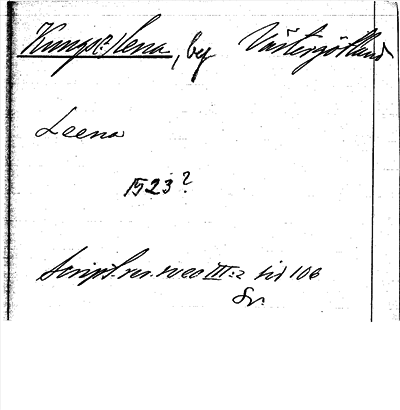 Kungs(:)lena, by Västergötland
Leena
1523?
Script. rer. svec III:2 sid 106
Sv.